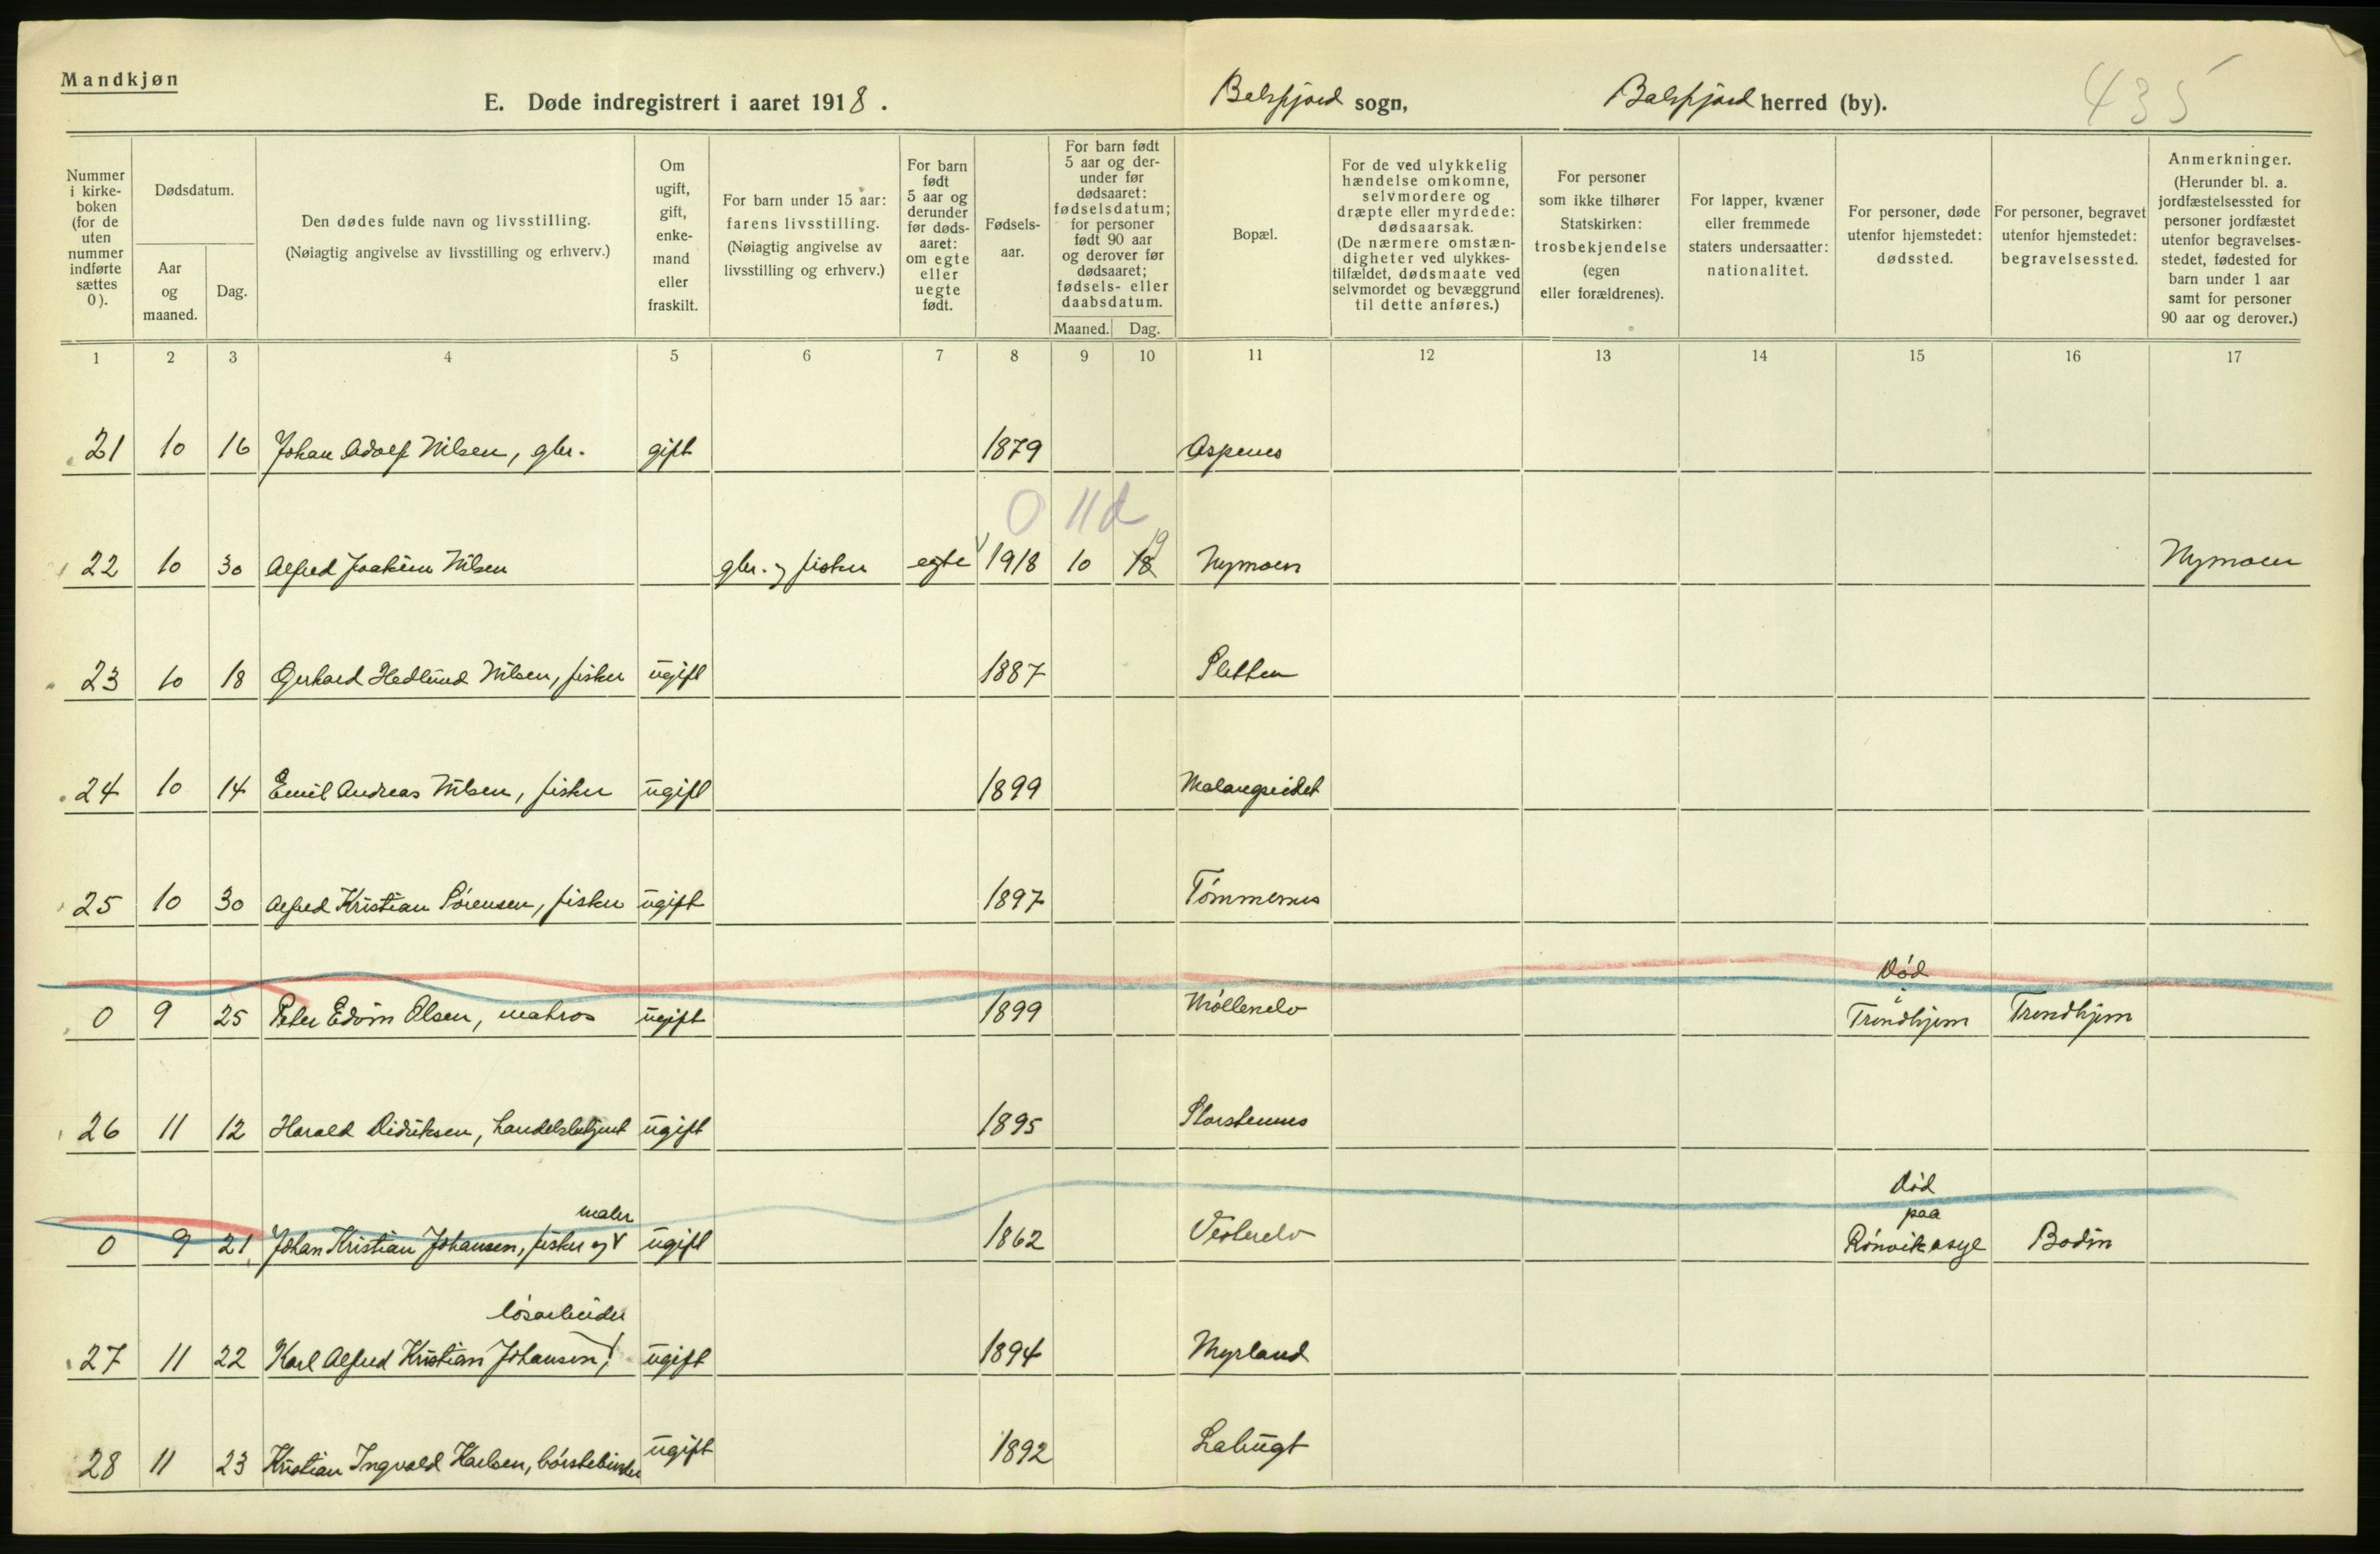 Mandkjøn
E. Døde indregistrert i aaret 1918. Balsfjord sogn, Balsfjord herred (by). 435
Nummer i kirke-boken (for de uten nummer indførte sættes 0).
Dødsdatum.
Aar og maaned.
Dag.
Den dødes fulde navn og livsstilling.
(Nøiagtig angivelse av livsstilling og erhverv.)
Om ugift, gift, enke-mand eller fraskilt.
For barn under 15 aar: farens livsstilling. (Nøiagtig angivelse av livsstilling og erhverv.)
For barn født 5 aar og derunder før døds-aaret: om egte eller uegte født.
Fødsels-aar.
For barn født 5 aar og der-under før dødsaaret: fødselsdatum; for personer født 90 aar og derover før dødsaaret; fødsels- eller daabsdatum.
Maaned. Dag.
Bopæl.
For de ved ulykkelig hændelse omkomne, selvmordere og dræpte eller myrdede: dødsaarsak. (De nærmere omstæn-digheter ved ulykkes-tilfældet, dødsmaate ved selvmordet og bevæggrund til dette anføres.)
For personer som ikke tilhører Statskirken: trosbekjendelse (egen eller forældrenes).
For lapper, kvæner eller fremmede staters undersaatter: nationalitet.
For personer, døde utenfor hjemstedet: dødssted.
For personer, begravet utenfor hjemstedet: begravelsessted.
Anmerkninger. (Herunder bl. a. jordfæstelsessted for personer jordfæstet utenfor begravelses-stedet, fødested for barn under 1 aar samt for personer 90 aar og derover.)
1 2 3 4 5 6 7 8 9 10 11 12 13 14 15 16 17
21 10 16 Johan Adolf Nilsen, gbr. gift 1879 Aspenes
0 11d
19
22 10 30 Alfred Joakim Nilsen gbr. og fisker egte 1918 10 18 Nymoen Nymoen
23 10 18 Gerhard Hedlund Nilsen, fisker ugift 1887 Sletten
24 10 14 Emil Andreas Nilsen, fisker ugift 1899 Malangseidet
25 10 30 Alfred Kristian Sørensen, fisker ugift 1897 Tømmernes
Død
i
0 9 25 Peter Edvin Olsen, matros ugift 1899 Møllenelv Trondhjem Trondhjem
26 11 12 Harald Diduksen, handelsbetjent ugift 1895 Storstennes
Død
maler paa
0 9 21 Johan Kristian Johansen, fisker og ugift 1862 Vesterelv Rønvik asyl Bodin
løsarbeider
27 11 22 Karl Alfred Kristian Johansen, ugift 1894 Myrland
28 11 23 Kristian Ingvald Karlsen, børstebinder ugift 1892 Labugt